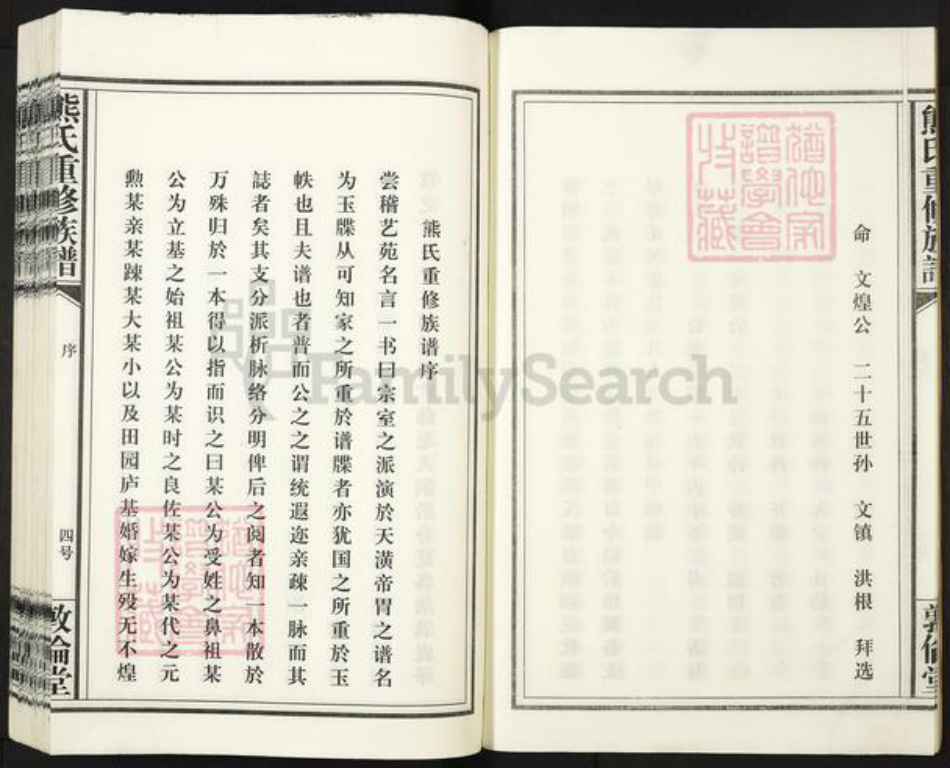 熊氏重修族谱
敦伦堂
命 文煌公 二十五世孙 文镇 洪根 拜选
猶他家譜學會收藏
熊氏重修族谱序
尝稽艺苑名言一书曰宗室之派演於天潢帝胄之谱名
为玉牒从可知家之所重於谱牒者亦犹国之所重於玉
帙也且夫谱也者普而公之之谓统遐迩亲疎一脉而其
誌者矣其支分派析脉络分明俾后之阅者知一本散於
万殊归於一本得以指而识之曰某公为受姓之鼻祖某
公为立基之始祖某公为某时之良佐某公为某代之元
勲某亲某踈某大某小以及田园庐基婚嫁生殁无不煌
猶他家譜學會收藏
熊氏重修族谱
序
四号
敦倫堂
FamilySearch